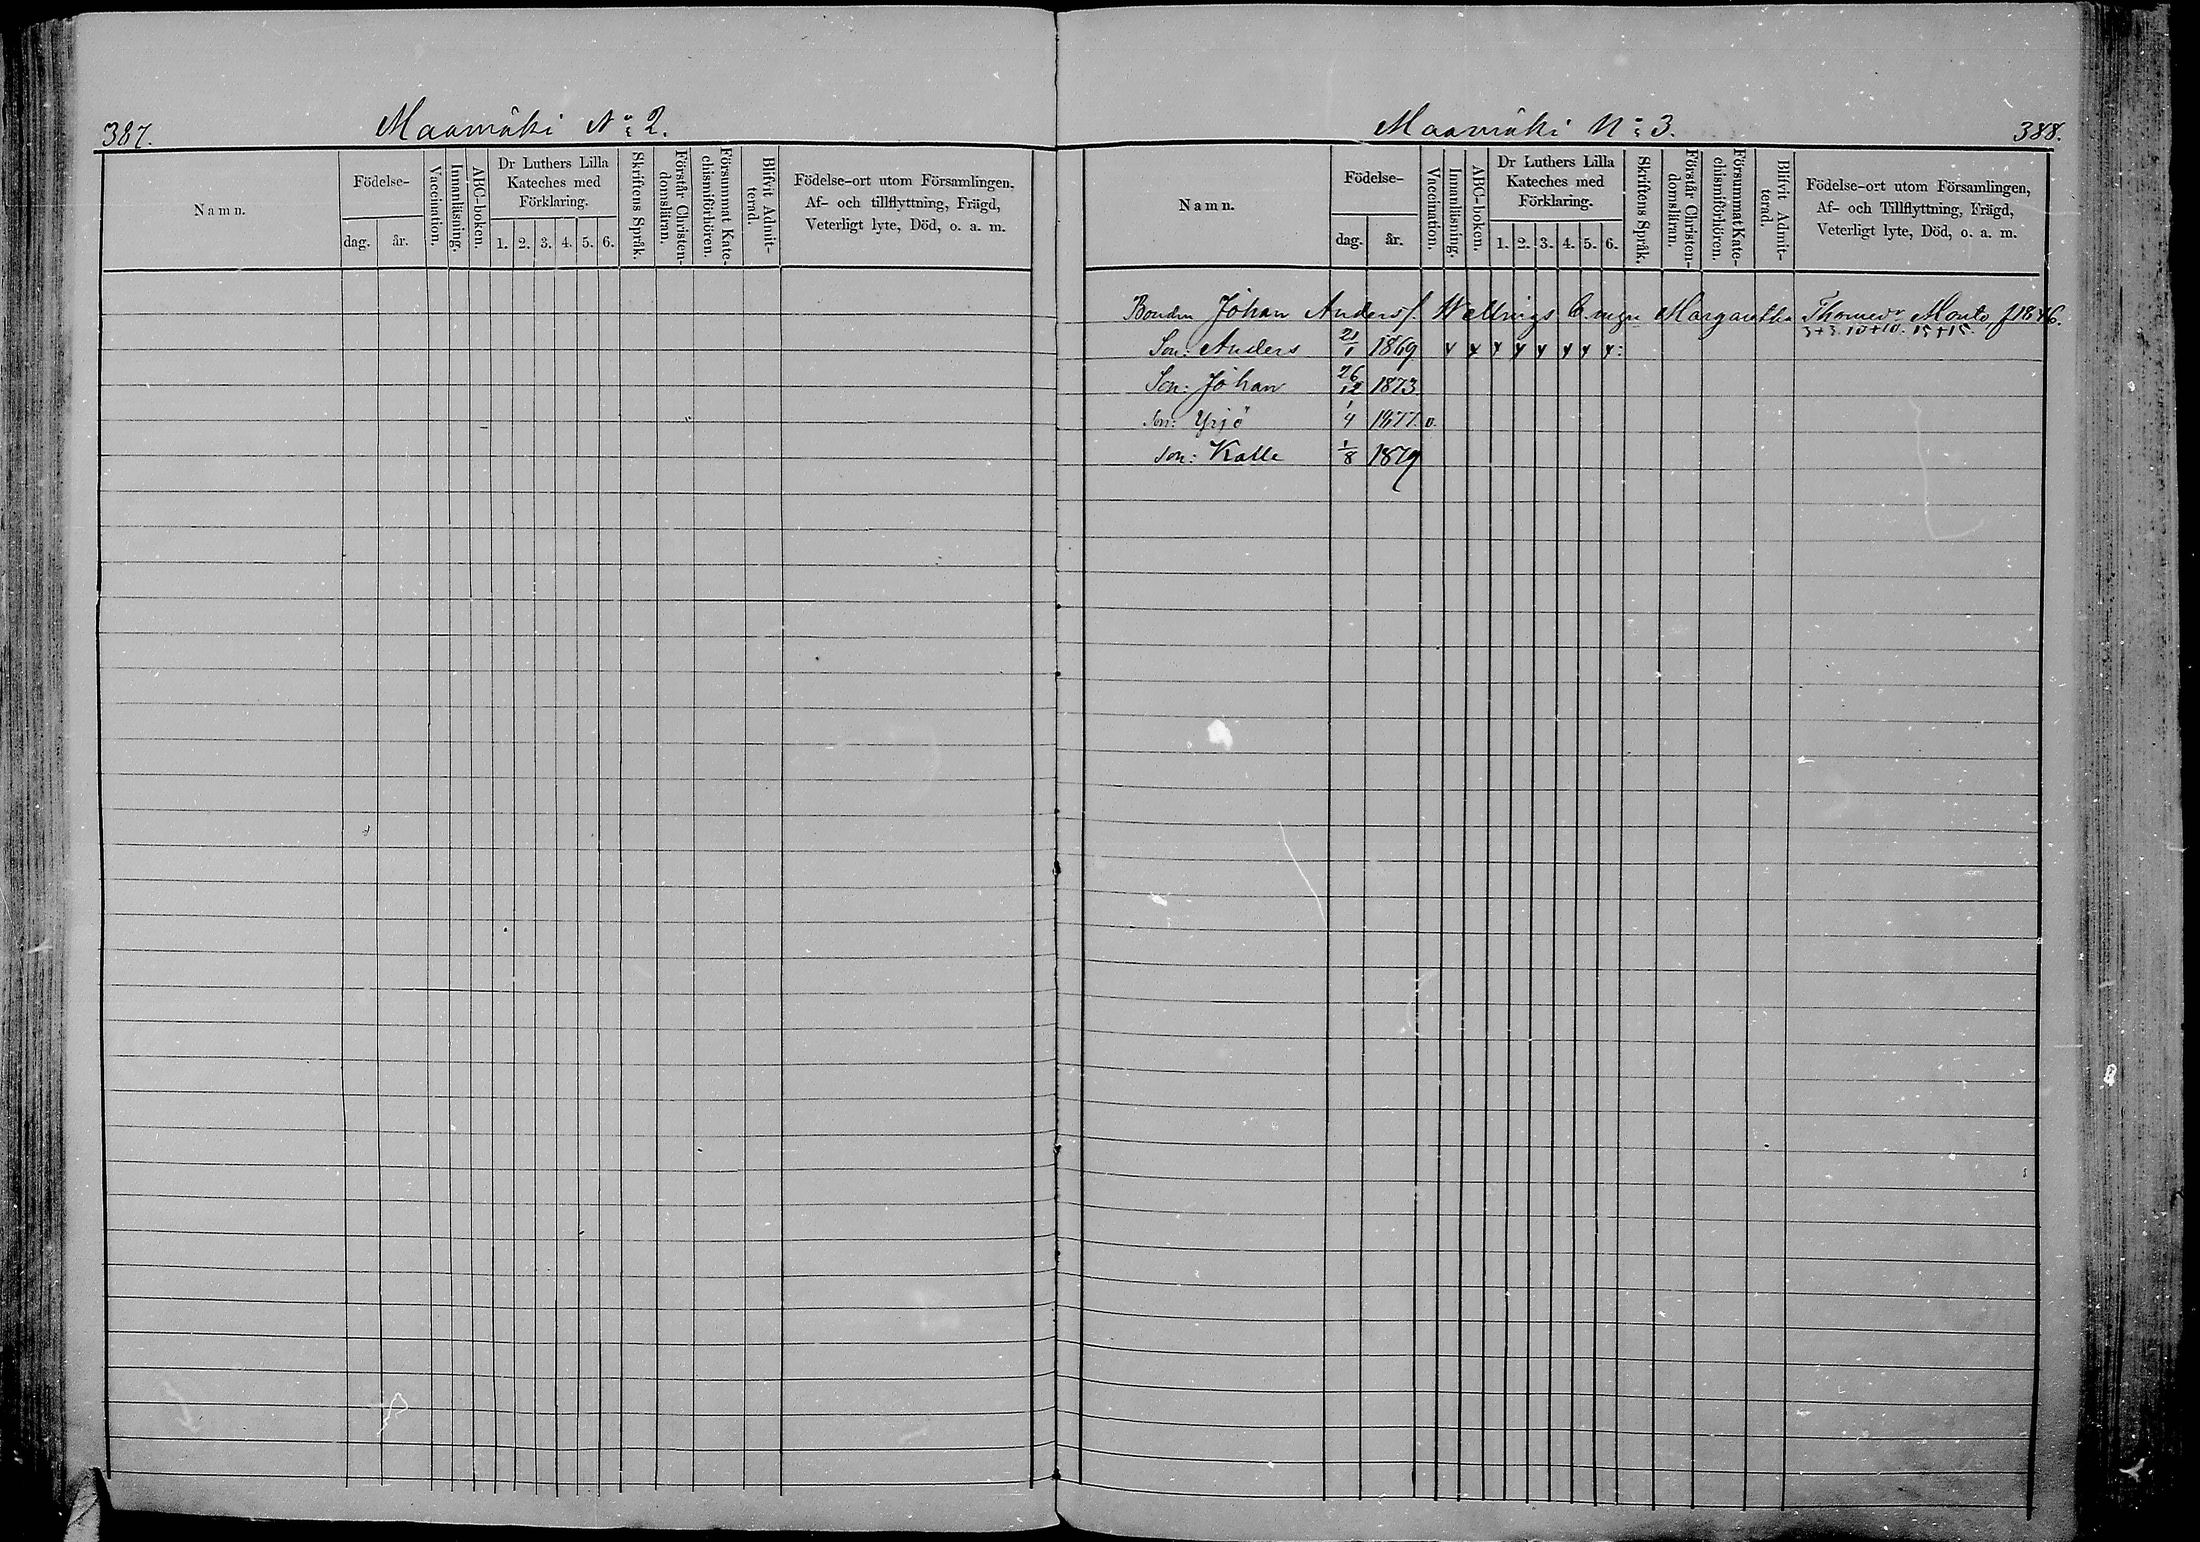 387. Maamäki No: 2.
Namn.
Födelse-
dag. år.
Vaccination.
Innanläsning.
ABC-boken.
Dr Luthers Lilla
Kateches med
Förklaring.
1. 2. 3. 4. 5. 6.
Skriftens Språk.
Förstår Christen-
domsläran.
Försummat Kate-
chismiförhören.
Blifvit Admit-
terad.
Födelse-ort utom Församlingen,
Af- och tillflyttning, Frägd,
Veterligt lyte, Död, o. a. m.
Maamäki No: 3. 388.
Namn.
Födelse-
dag. år.
Vaccination.
Innanläsning.
ABC-boken.
Dr Luthers Lilla
Kateches med
Förklaring.
1. 2. 3. 4. 5. 6.
Skriftens Språk.
Förstår Christen-
domsläran.
Försummat Kate-
chismiförhören.
Blifvit Admit-
terad.
Födelse-ort utom Församlingen,
Af- och Tillflyttning, Frägd,
Veterligt lyte, Död, o. a. m.
Bonden Johan Anders s. Margaretha f 1846.
3+3. 10+10. 15+15.
Son: Anders 21/1 1869
Son: Johan 26/12 1873
Son: Yrjö 1/4 1877. v.
Son: Kalle 1/8 1879